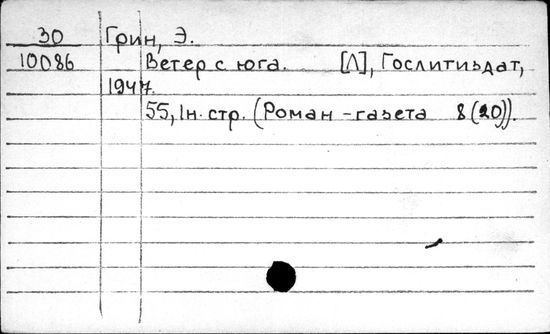 30 Грин, Э.
10086 Ветер с юга. [Л], Гослитиздат,
1947.
55, 1н. стр. (Роман-газета 8(20)).